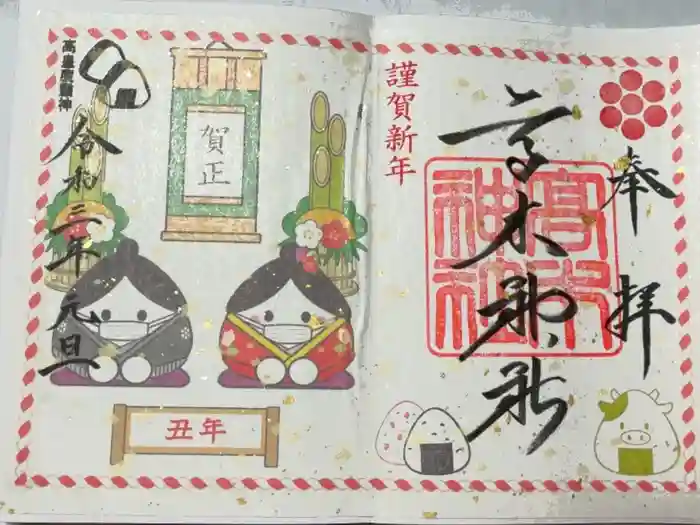 奉拝
高木神社
高木神社
謹賀新年
賀正
高皇産靈神
令和三年元旦
丑年